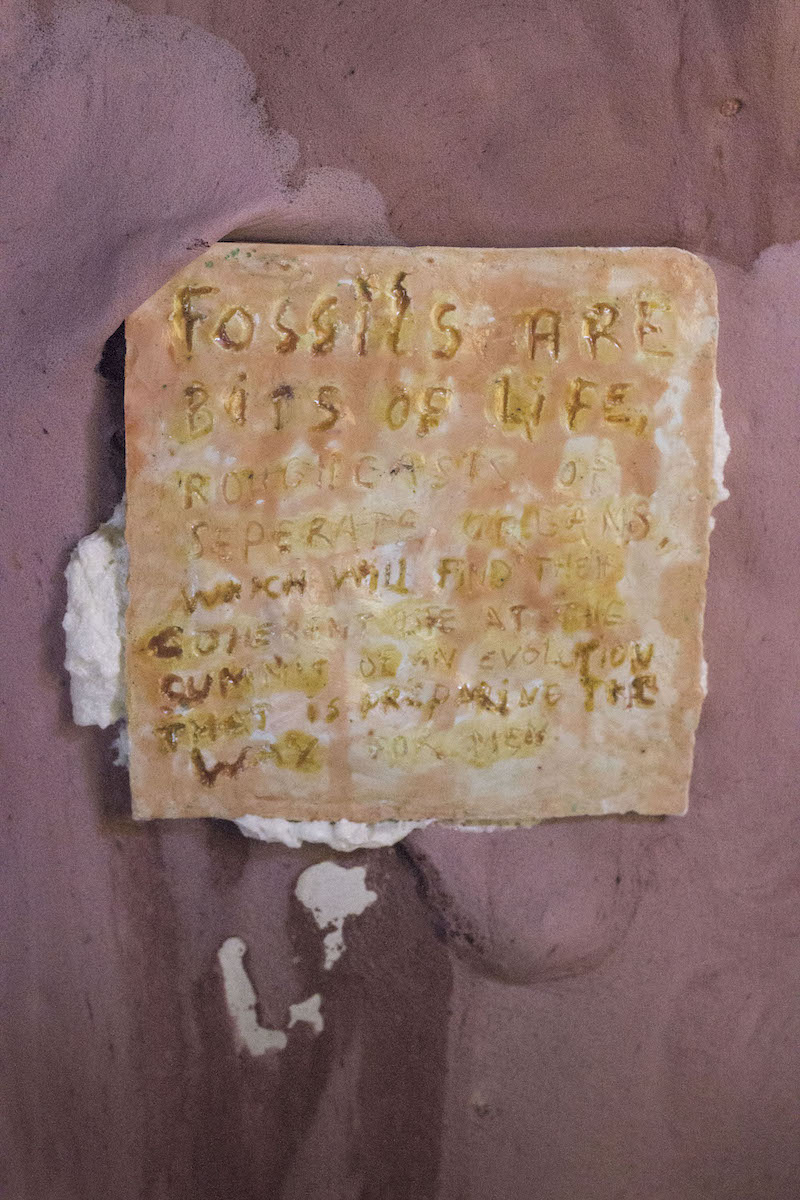 FOSSiLS ARE
BiTS OF LiFE,
ROUGHCASTS OF
SEPERATE ORGANS,
WHICH WILL FIND THEIR
COHERENT LIFE AT THE
SUMMIT OF AN EVOLUTION
THAT IS PREPARING THE
WAY FOR MEN